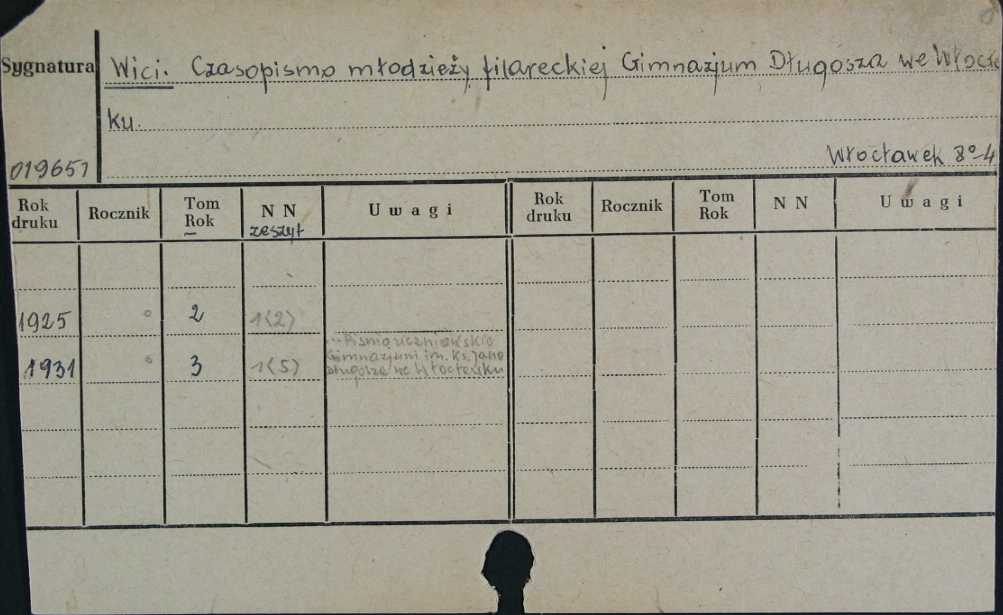 Sygnatura Wici. Czasopismo młodzieży filareckiej Gimnazjum Długosza we Włocła
ku.
019651 Włocławek 8°-4
Rok druku Rocznik Tom Rok NN zeszyt Uwagi Rok druku Rocznik Tom Rok NN Uwagi
1925 ° 2 1(2)
1931 ° 3 1(5) ... Pismo uczniowskie
Gimnazjum im. ks. Jana
Długosza we Włocławku